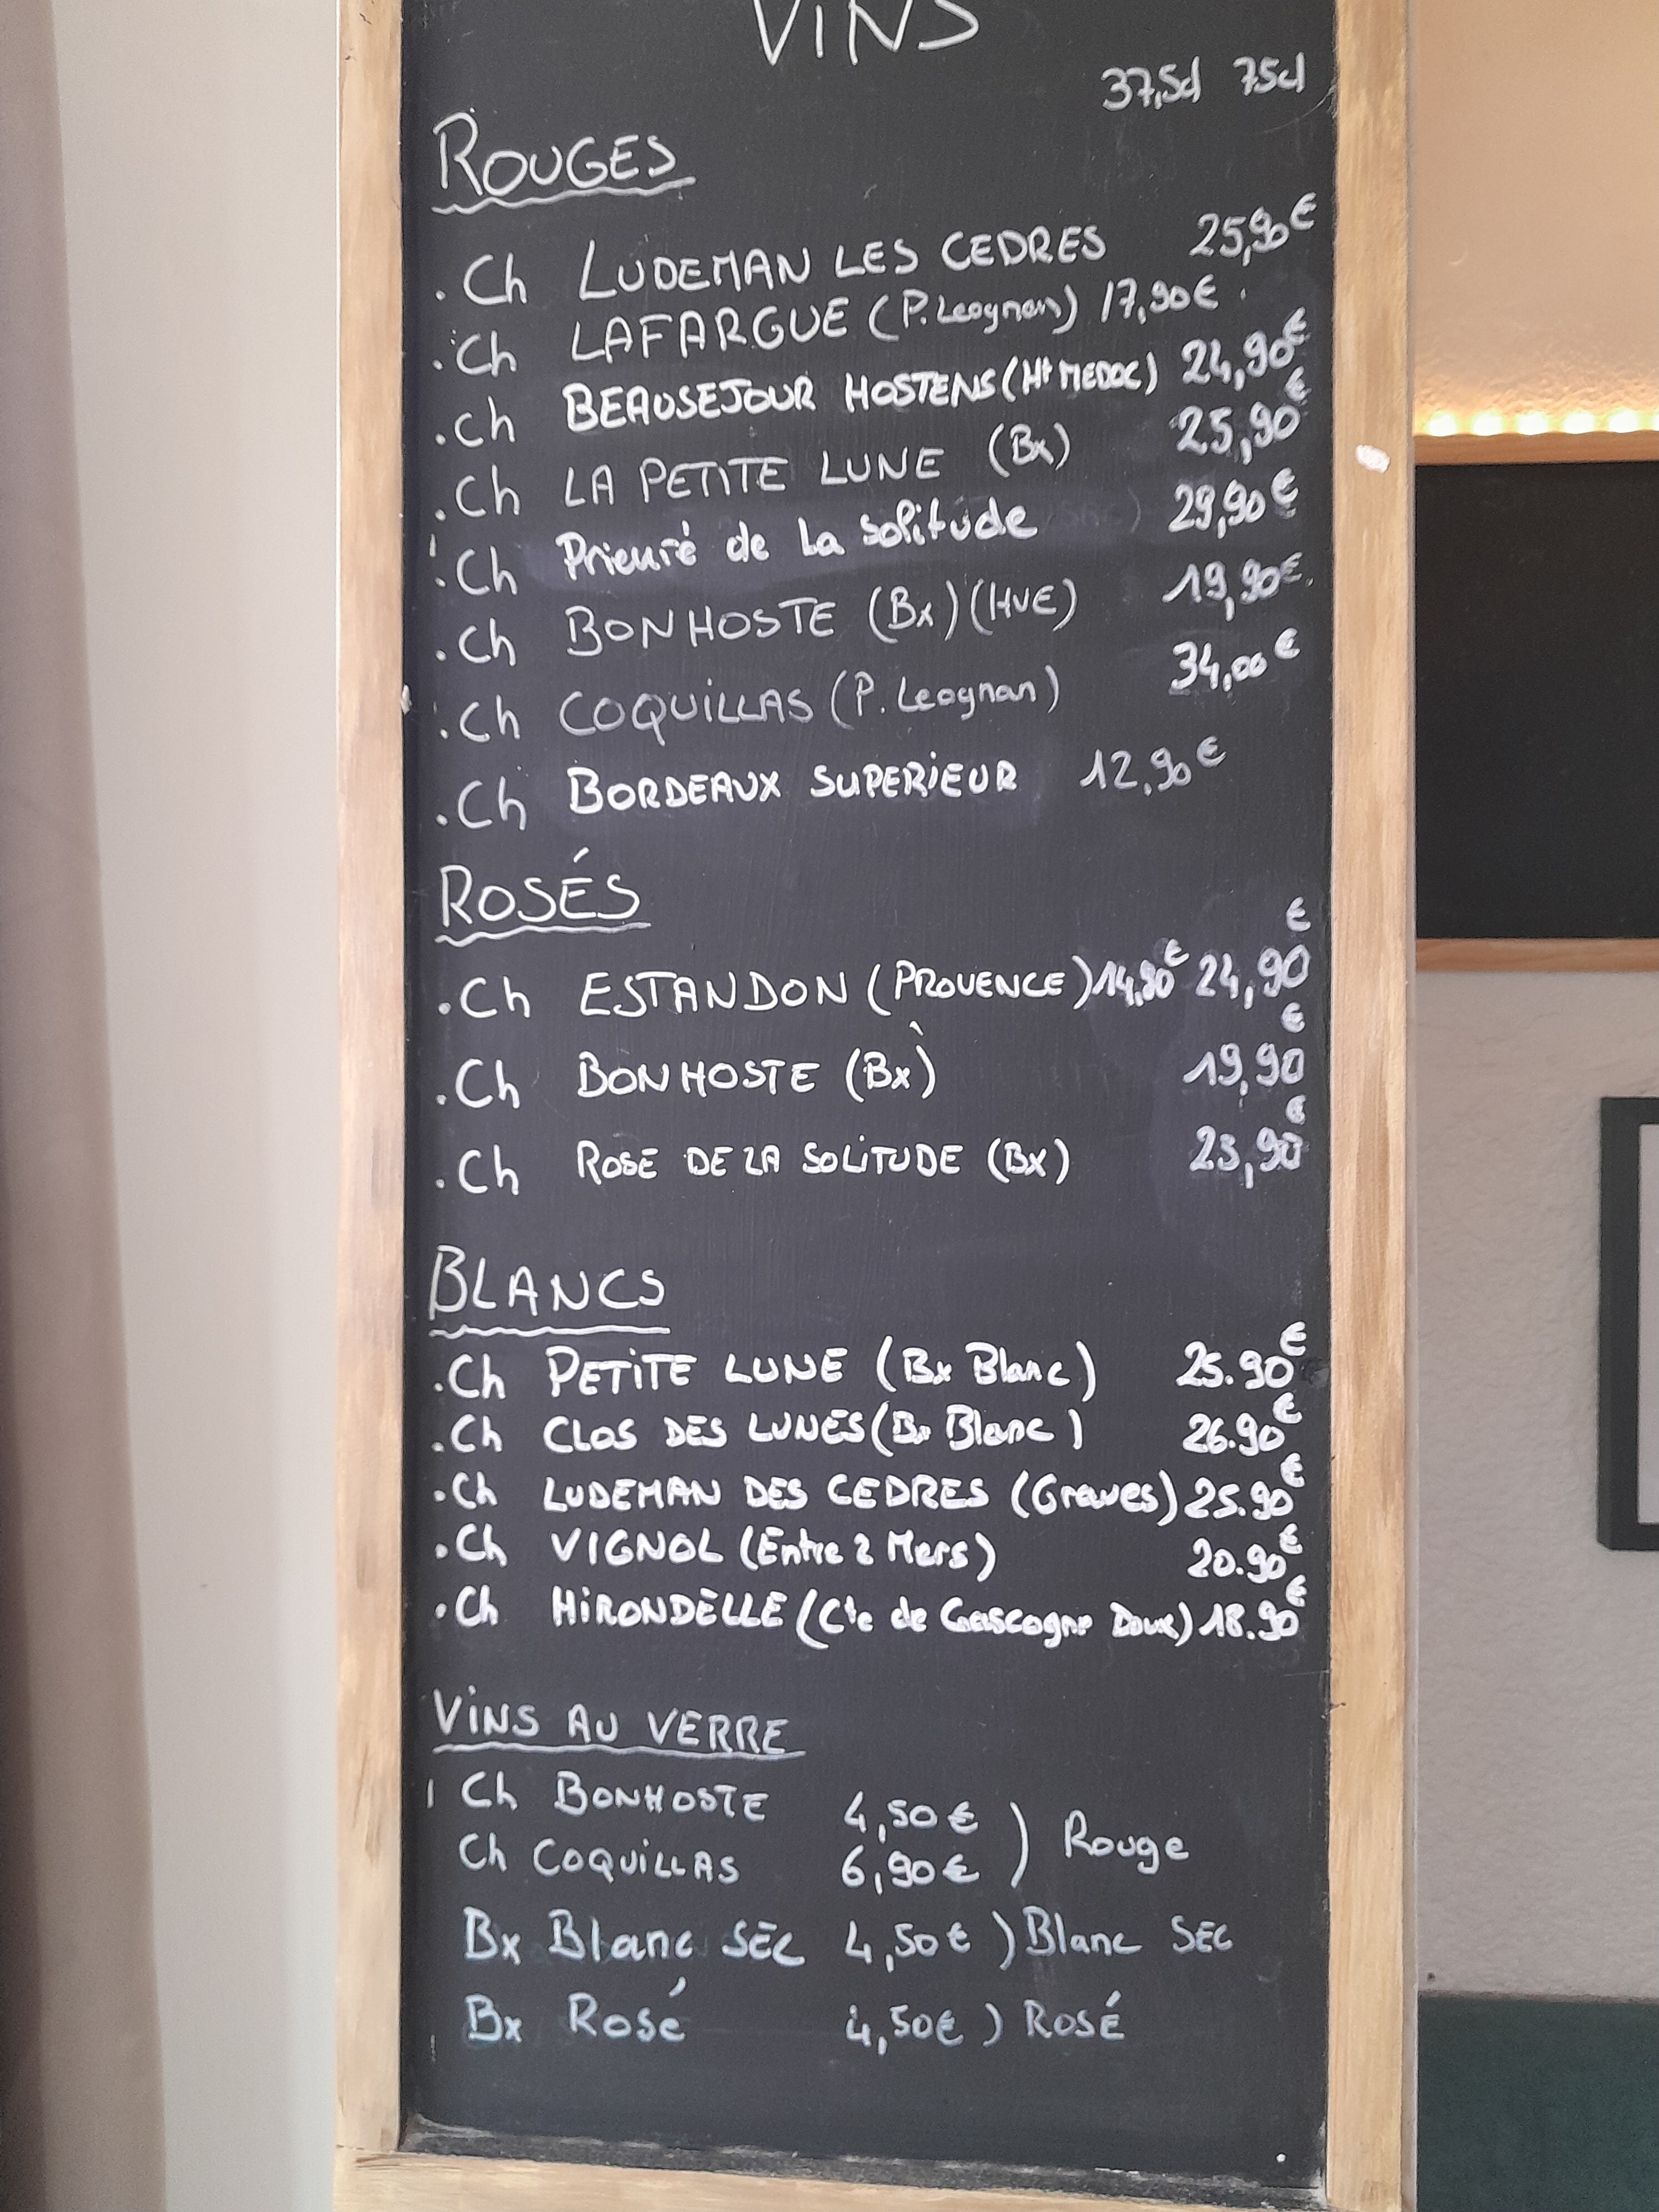 VINS
37,5cl 75cl
ROUGES
. Ch LUDEMAN LES CEDRES 25,90€
. Ch LAFARGUE (P. Leognan) 17,90€
. Ch BEAUSEJOUR HOSTENS (Ht MEDOC) 24,90€
. Ch LA PETITE LUNE (Bx) 25,90€
. Ch Prieuré de La Solitude 29,90€
. Ch BONHOSTE (Bx) (HVE) 19,90€
. Ch COQUILLAS (P. Leognan) 34,00€
. Ch BORDEAUX SUPERIEUR 12,90€
ROSÉS
. Ch ESTANDON (PROVENCE) 14,90€ 24,90€
. Ch BONHOSTE (Bx) 19,90€
. Ch ROSE DE LA SOLITUDE (Bx) 25,90€
BLANCS
. Ch PETITE LUNE (Bx Blanc) 25.90€
. Ch CLOS DES LUNES (Bx Blanc) 26.90€
. Ch LUDEMAN DES CEDRES (Graves) 25.90€
. Ch VIGNOL (Entre 2 Mers) 20.90€
. Ch HIRONDELLE (Cte de Gascogne Doux) 18.90€
VINS AU VERRE
Ch BONHOSTE 4,50€ ) Rouge
Ch COQUILLAS 6,90€
Bx Blanc SEC 4,50€ ) Blanc SEC
Bx Rosé 4,50€ ) ROSÉ